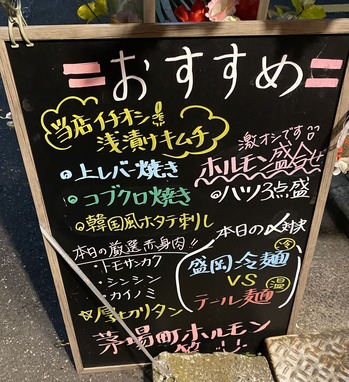 =おすすめ=
当店イチオシ!
浅漬けキムチ
激オシです
・上レバー焼き
ホルモン盛合せ
・コブクロ焼き
・ハツ3点盛
・韓国風ホタテ刺し
本日の厳選赤身肉!!
・トモサンカク
・シンシン
・カイノミ
☆厚切りタン
本日の〆対決
冷
盛岡冷麺
VS
温
テール麺
茅場町ホルモン